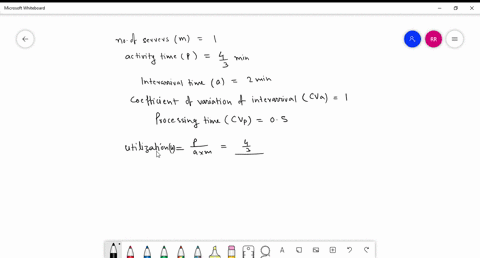 Microsoft Whiteboard
RR
no. of servers (m) = 1
activity time (P) = 4/3 min
Interarrival time (a) = 2 min
Coefficient of variation of interarrival (CVa) = 1
Processing time (CVp) = 0.5
utilization(u) = P/a×m = 4/3